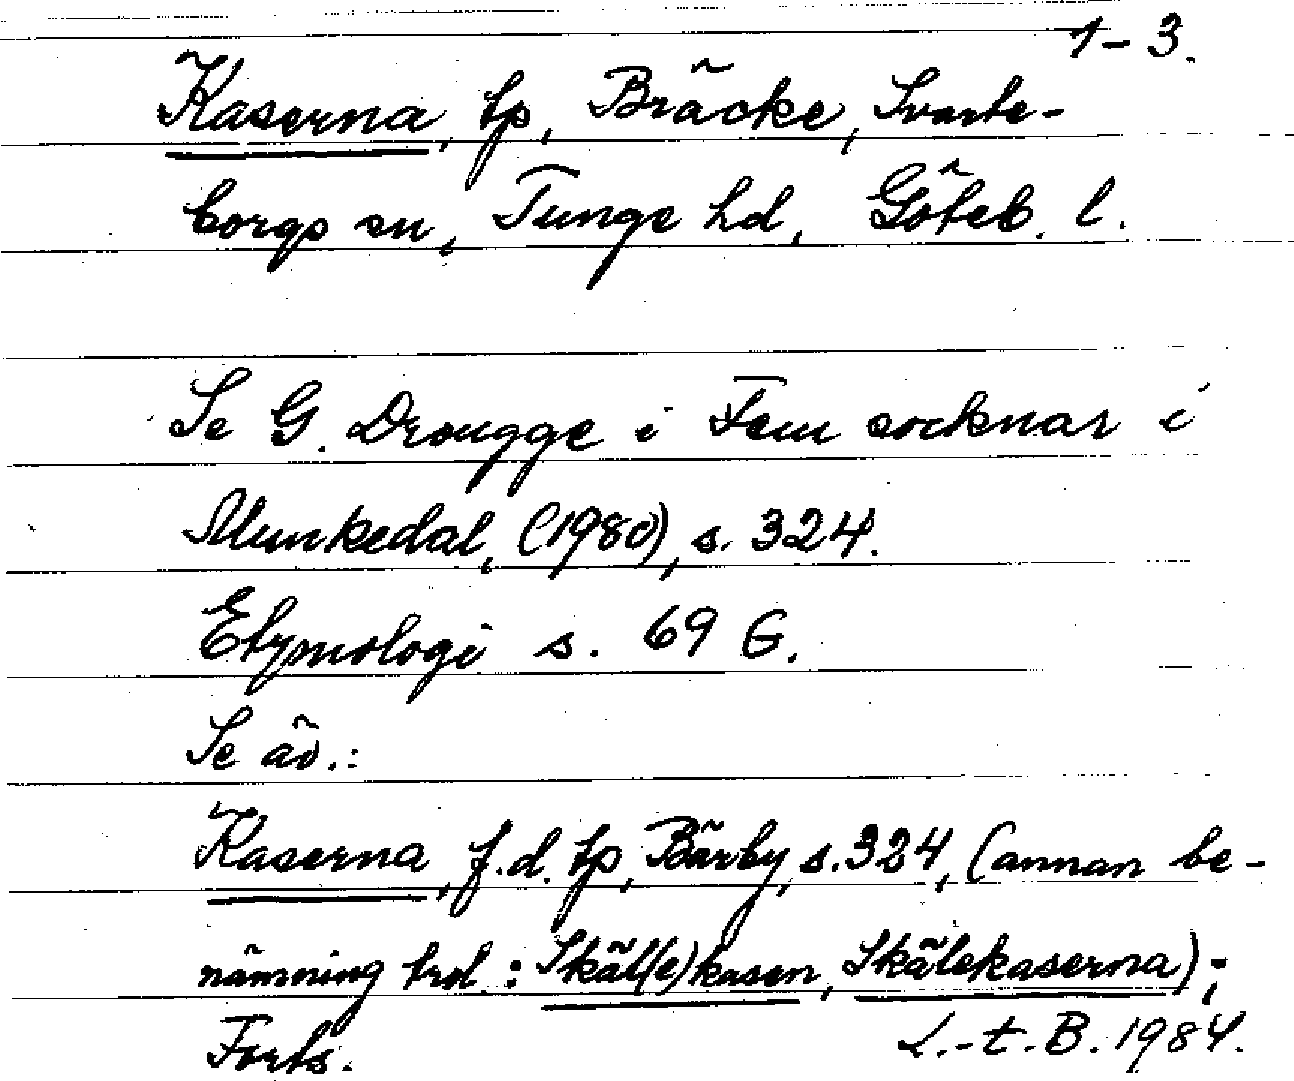 1-3.
Kaserna, tp, Bräcke, Svarte-
borgs sn, Tunge hd, Göteb. l.
Se G. Drougge i Fem socknar i
Munkedal, (1980), s. 324.
Etymologi s. 69 G.
Se äv.:
Kaserna, f.d. tp, Bärby, s. 324, (annan be-
nämning trol.: Skäl(e)kasen, Skälekaserna);
Forts. L.-t. B. 1984.